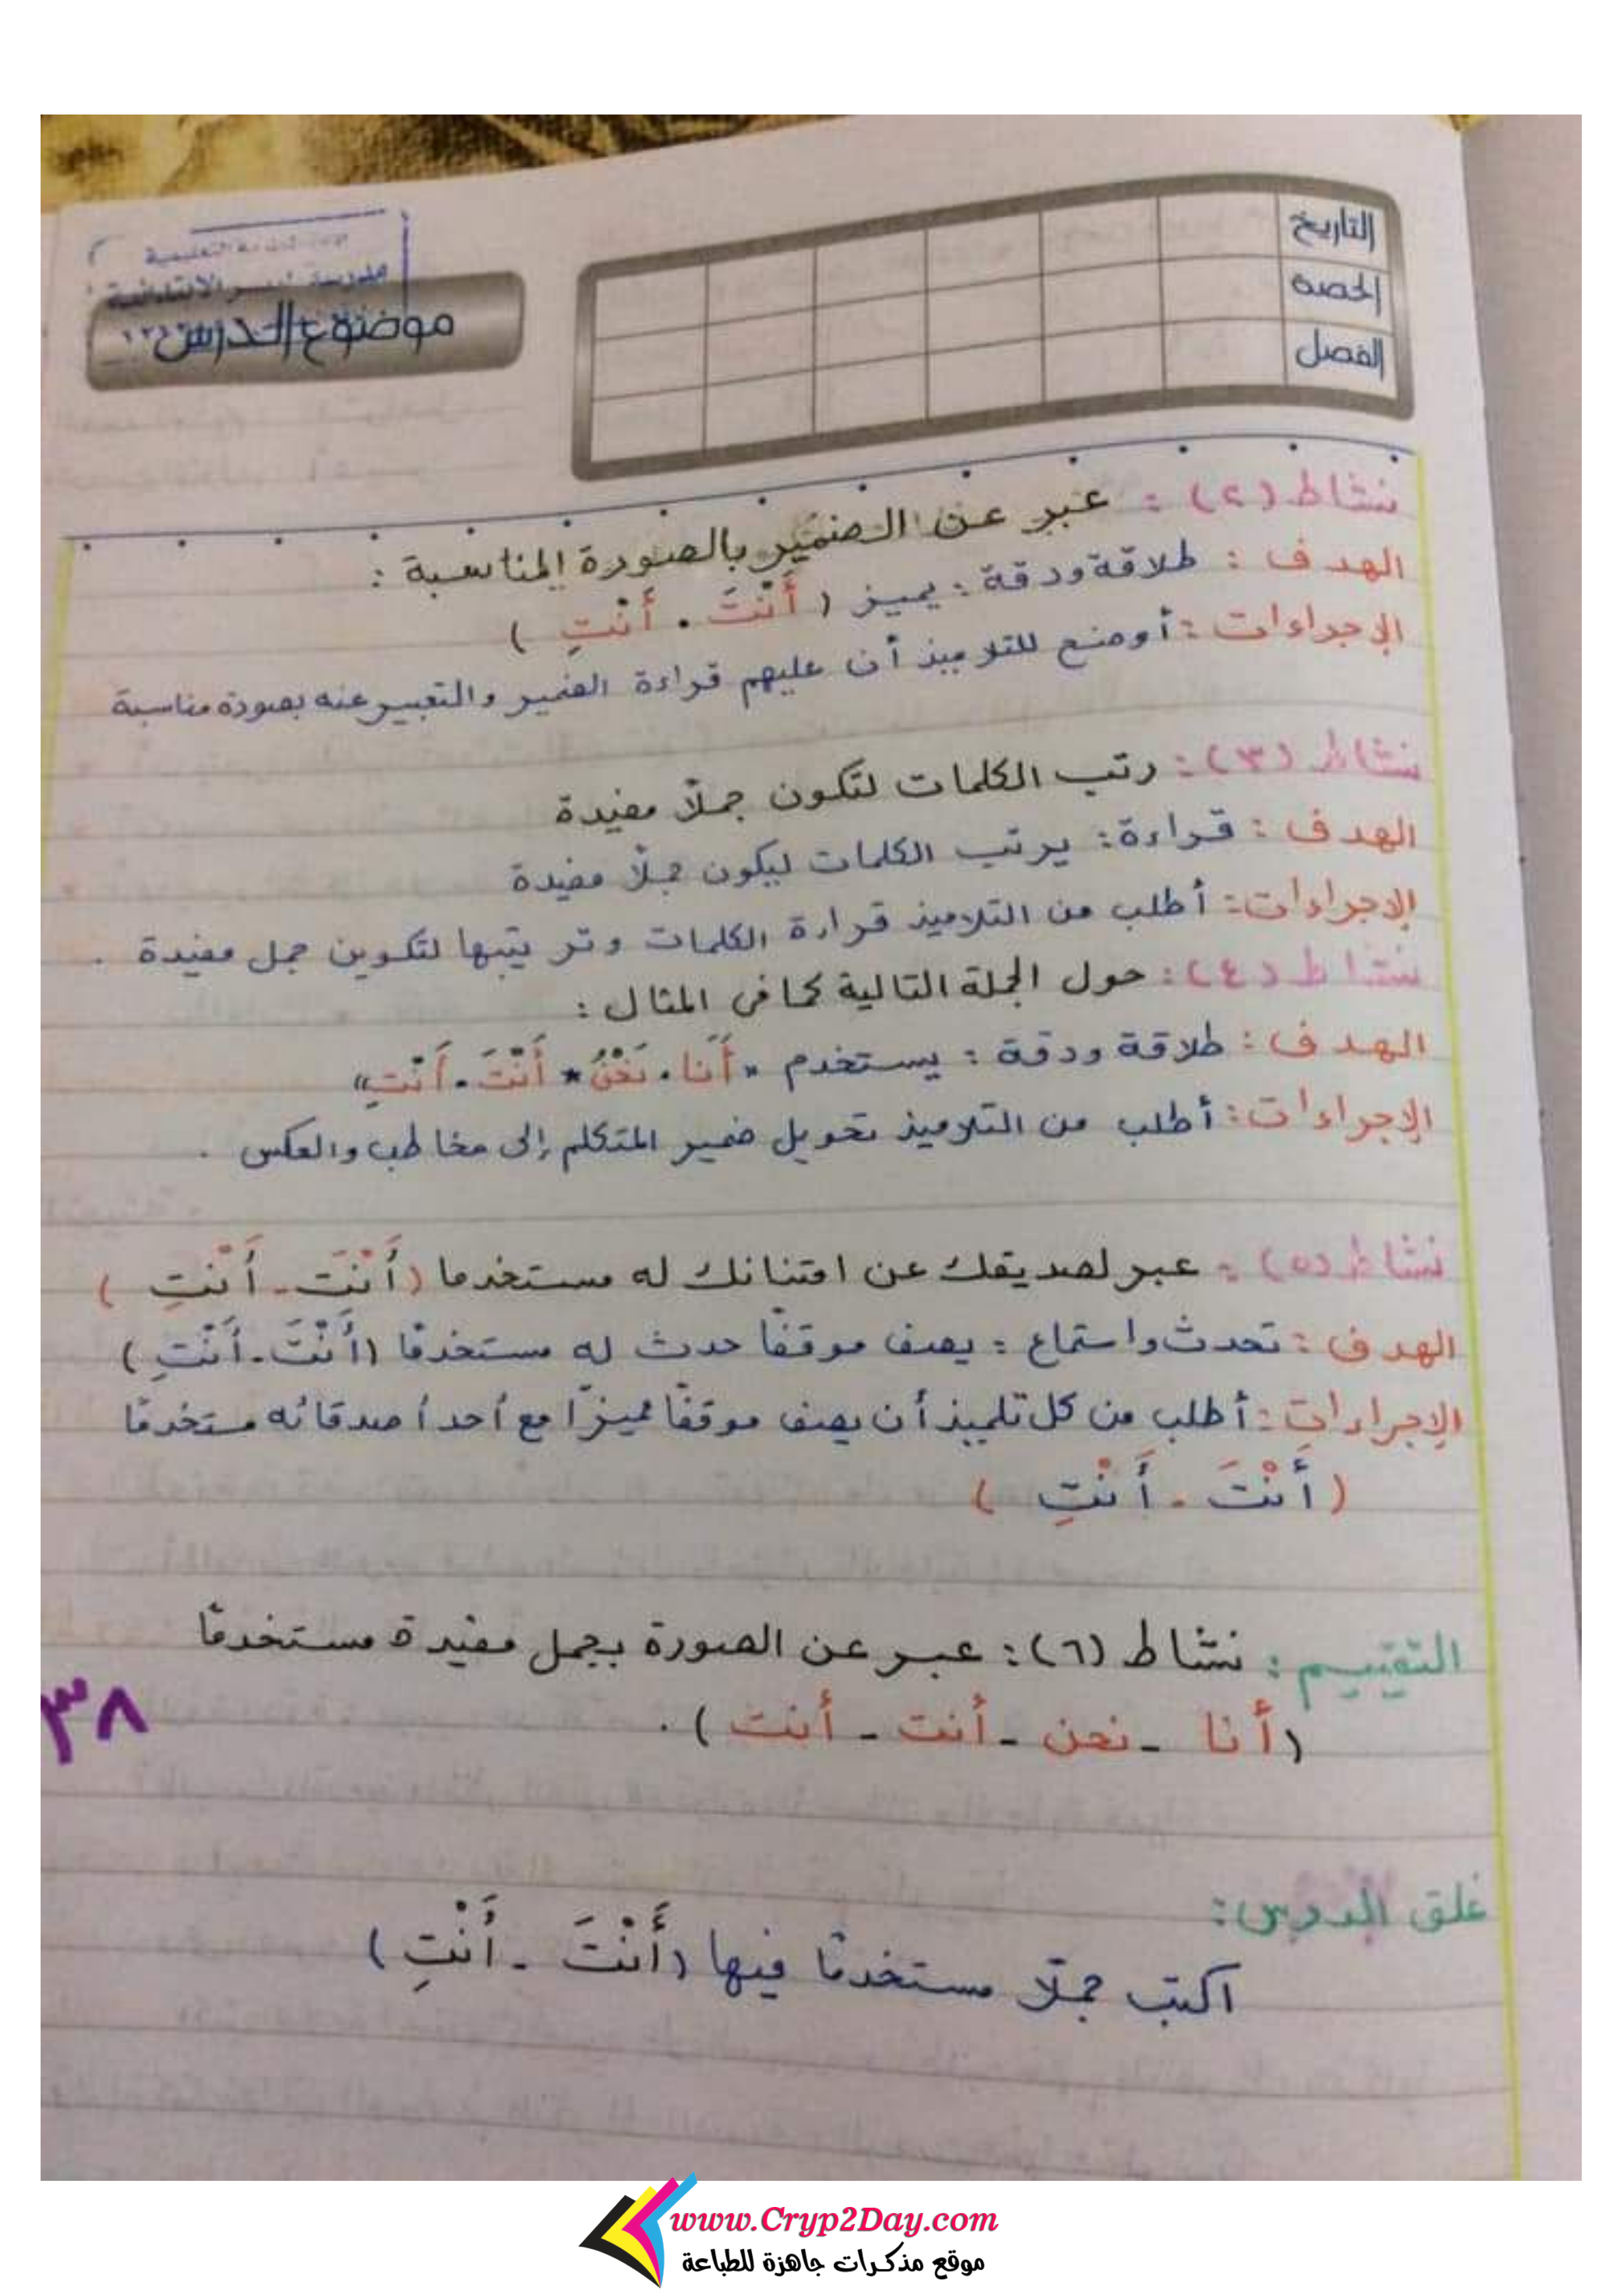 التاريخ
الحصة
الفصل
الابتدائية
موضوع الدرس
نشاط (٢) : عبر عن الضمير بالصورة المناسبة :
الهدف : طلاقة ودقة : يميز ( أَنْتَ . أَنْتِ )
الإجراءات : أوضح للتلاميذ أن عليهم قراءة الضمير والتعبير عنه بصورة مناسبة
نشاط (٣) : رتب الكلمات لتكون جملًا مفيدة
الهدف : قراءة : يرتب الكلمات ليكون جملًا مفيدة
الإجراءات : أطلب من التلاميذ قراءة الكلمات وترتيبها لتكوين جمل مفيدة .
نشاط (٤) : حول الجملة التالية كما فى المثال :
الهدف : طلاقة ودقة : يستخدم " أَنَا . نَحْنُ * أَنْتَ . أَنْتِ "
الإجراءات : أطلب من التلاميذ تحويل ضمير المتكلم إلى مخاطب والعكس .
نشاط (٥) : عبر لصديقك عن امتنانك له مستخدما ( أَنْتَ - أَنْتِ )
الهدف : تحدث واستماع : يصف موقفًا حدث له مستخدمًا ( أَنْتَ - أَنْتِ )
الإجراءات : أطلب من كل تلميذ أن يصف موقفًا مميزًا مع أحد أصدقائه مستخدمًا
( أَنْتَ - أَنْتِ )
التقييم : نشاط (٦) : عبر عن الصورة بجمل مفيدة مستخدمًا
( أنا - نحن - أنت - أنت ) .
٣٨
غلق الدرس :
اكتب جملًا مستخدمًا فيها ( أَنْتَ - أَنْتِ )
www.Cryp2Day.com
موقع مذكرات جاهزة للطباعة